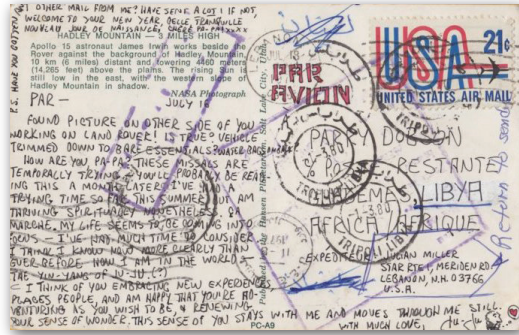 P.S. HAVE YOU GOTTEN MY
OTHER MAIL FROM ME? HAVE SENT A LOT IF NOT
WELCOME TO YOUR NEW YEAR, BELLE TRANQUILLE
NOUVEAU JOUR DE NAISSANCE, CHÈRE PA-PAXXXX
HADLEY MOUNTAIN — 3 MILES HIGH
Apollo 15 astronaut James Irwin works beside the
Rover against the background of Hadley Mountain,
10 km (6 miles) distant and towering 4460 m
(14,265 feet) above the plains. The rising sun
still low in the east, the western slope of
Hadley Mountain in shadow.
NASA Photograph
JULY 16
PAR —
FOUND PICTURE ON OTHER SIDE OF YOU
WORKING ON LAND ROVER! IS TRUE? VEHICLE
TRIMMED DOWN TO BARE ESSENTIALS? WATER BAGS
HOW ARE YOU PA-PA? THESE MISSALS ARE
TEMPORALLY TRYING. YOU'LL PROBABLY BE READ-
ING THIS A MONTH LATER. I'VE HAD A
TRYING TIME SO FAR THIS SUMMER. I AM
THRIVING SPIRITUALLY NONETHELESS
MARCHE. MY LIFE SEEMS TO BE COMING INTO
FOCUS — I'VE HAD MUCH TIME TO CONSIDER
I THINK I KNOW NOW MORE CLEARLY THAN
EVER BEFORE, HOW I AM IN THE WORLD —
THE YIN-YANGS OF JU-JU. (?)
I THINK OF YOU EMBRACING NEW EXPERIENCES,
PLACES PEOPLE, AND AM HAPPY THAT YOU'RE AD-
VENTURING AS YOU WISH TO BE, & RENEWING
YOUR SENSE OF WONDER. THIS SENSE OF YOU STAYS WITH ME AND MOVES THROUGH ME STILL.
WITH MUCH LOVE,
PC-A9
Hansen
Salt Lake City, Utah
PAR
AVION
USA 21c
UNITED STATES AIR MAIL
PAR DOBSON
POSTE RESTANTE
GHADEMES, LIBYA
AFRICA/AFRIQUE
EXPEDITEUR: JULIAN MILLER
STAR RTE 1, MERIDEN RD.
LEBANON, N.H. 03766
U.S.A.
TRIPOLI LIBYA
TRIPOLI LIBYA
طرابلس